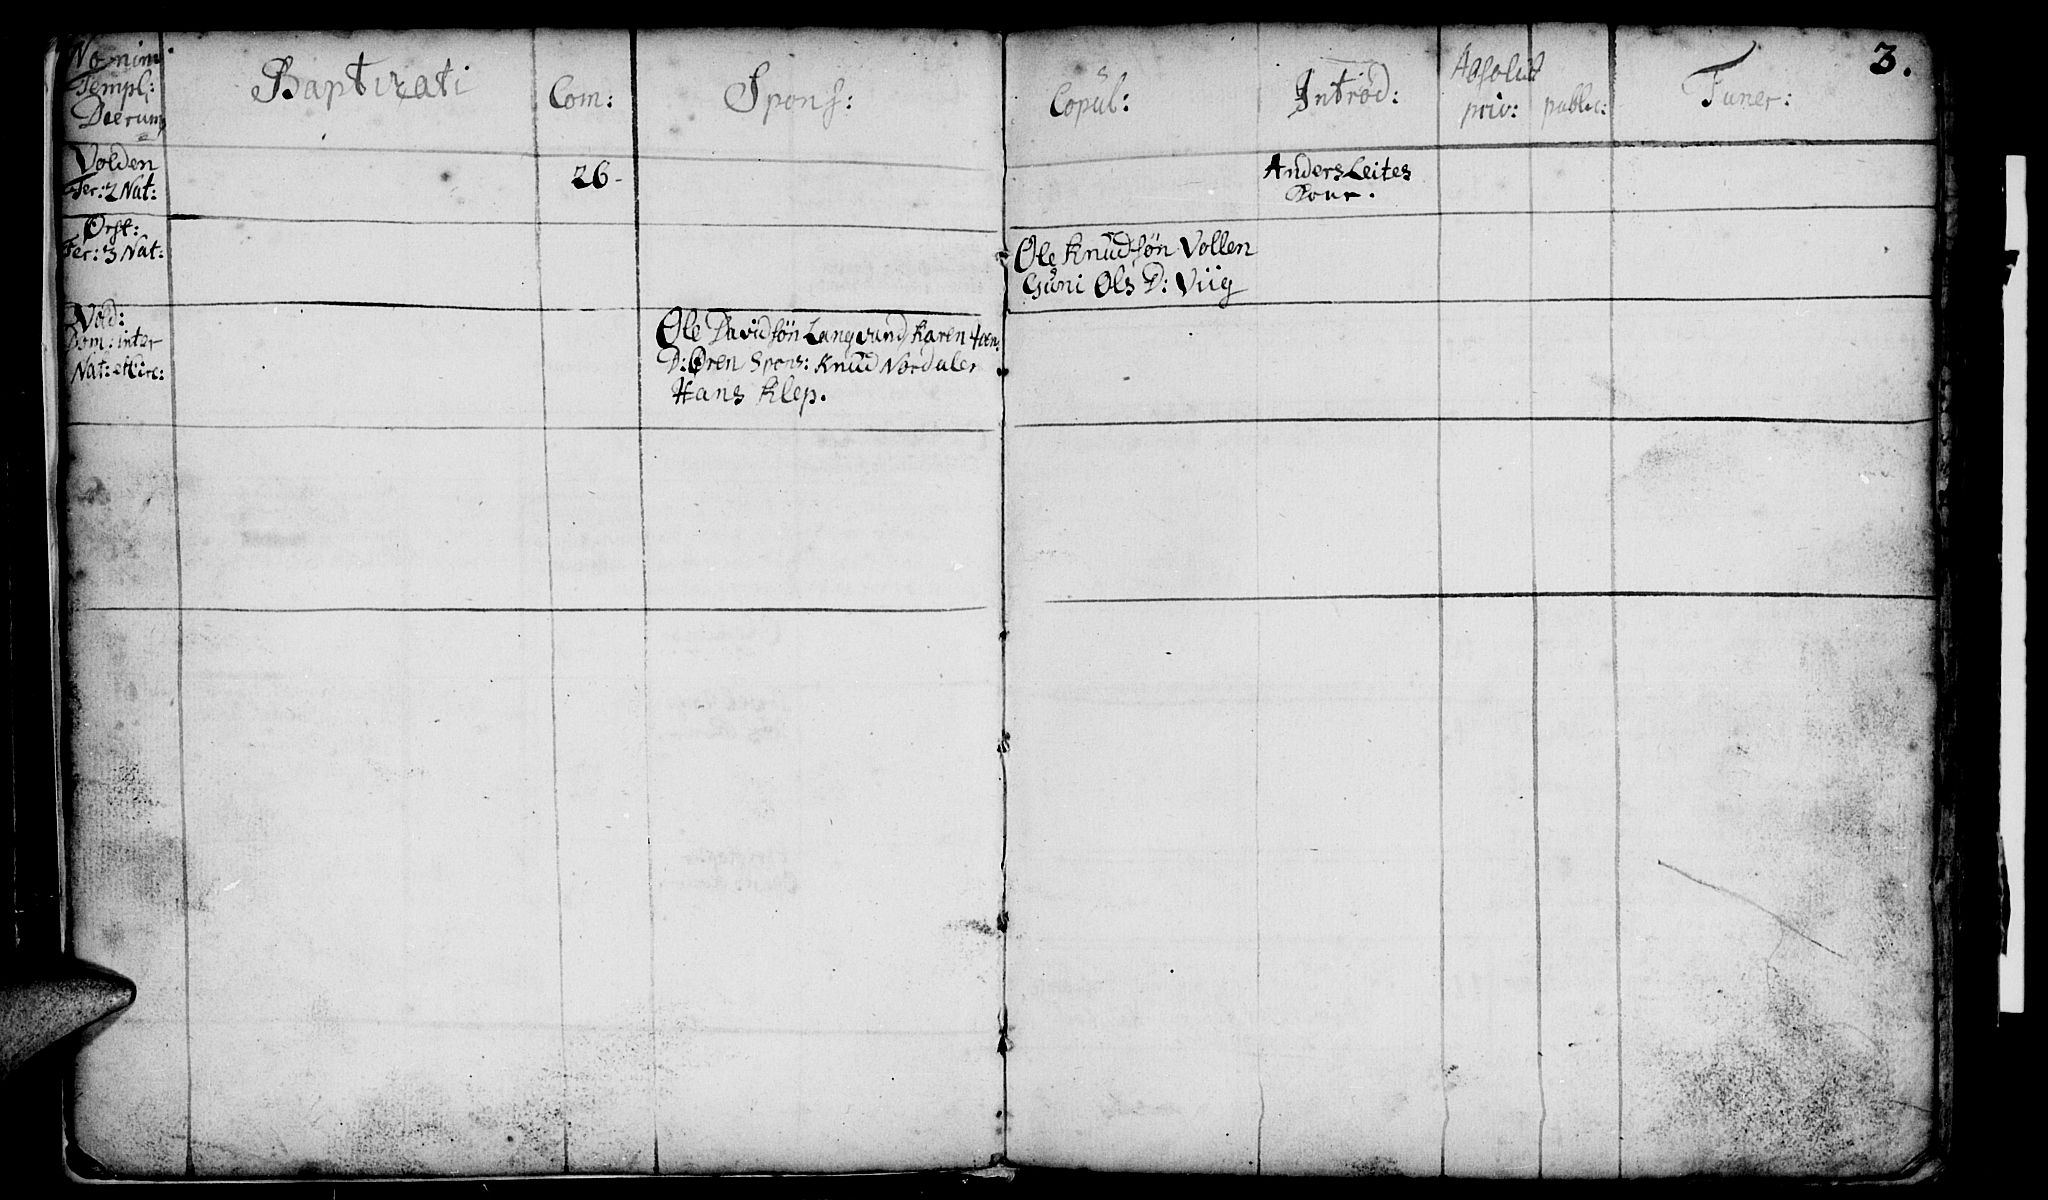 3.
Nomin:
Templ:
Dierum
Baptizati
Com:
Spons:
Copul:
Introd:
Absolut
priv: public:
Funer:
Volden
Fer: 2 Nat:
26-
Anders Leites
Kone.
Ørst:
Fer: 3 Nat:
Ole Knudsøn Vollen
Guni Ols D: Viig
Vold:
Dom: inter
Nat: et Circ:
Ole Davidsøn Langvand Karen
D: Øren Spons: Knud Nordaler
Hans Klep.